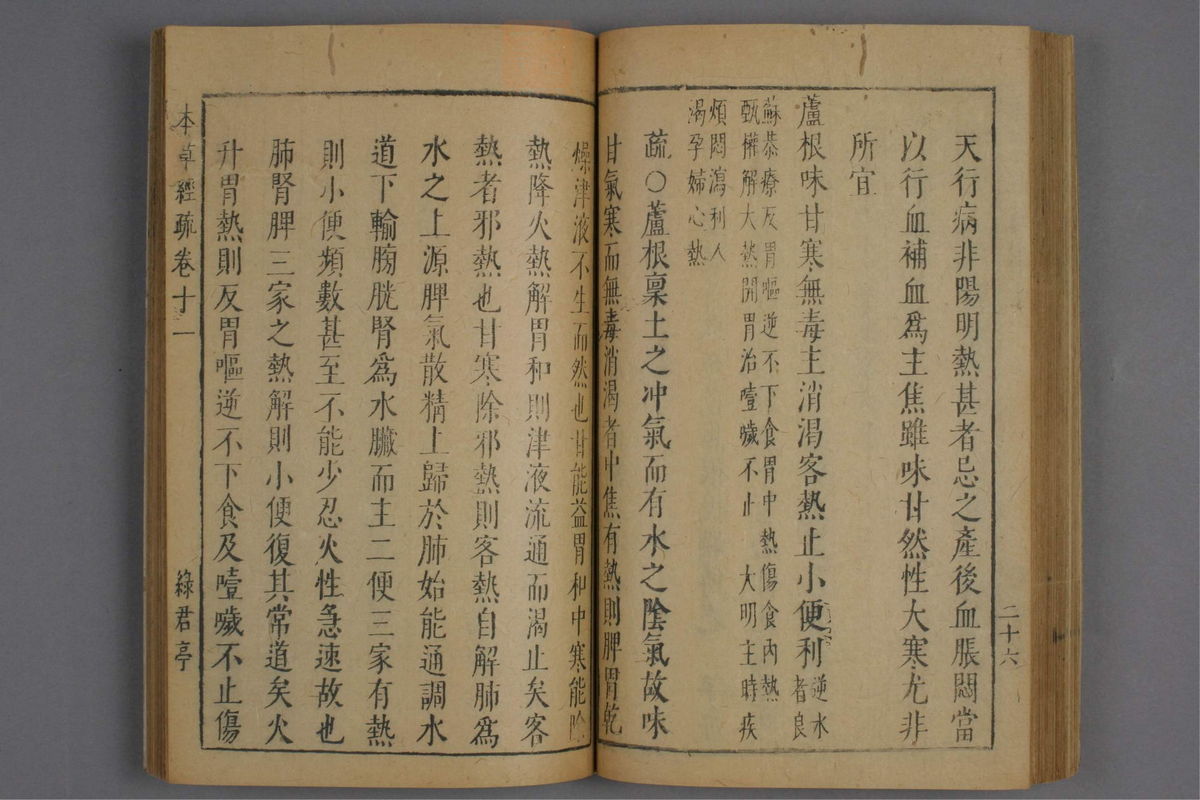 天行病非陽明熱甚者忌之產後血脹悶當
以行血補血爲主焦雖味甘然性大寒尤非
所宜
蘆根味甘寒無毒主消渴客熱止小便利
逆水
者良
蘇恭療反胃嘔逆不下食胃中熱傷食內熱
甄權解大熱開胃治噎噦不止 大明主時疾
煩悶瀉利人
渴孕婦心熱
疏○蘆根稟土之冲氣而有水之陰氣故味
甘氣寒而無毒消渴者中焦有熱則脾胃乾
二十六
燥津液不生而然也甘能益胃和中寒能除
熱降火熱解胃和則津液流通而渴止矣客
熱者邪熱也甘寒除邪熱則客熱自解肺爲
水之上源脾氣散精上歸於肺始能通調水
道下輸膀胱腎爲水臟而主二便三家有熱
則小便頻數甚至不能少忍火性急速故也
肺腎脾三家之熱解則小便復其常道矣火
升胃熱則反胃嘔逆不下食及噎噦不止傷
本草經疏卷十一
綠君亭